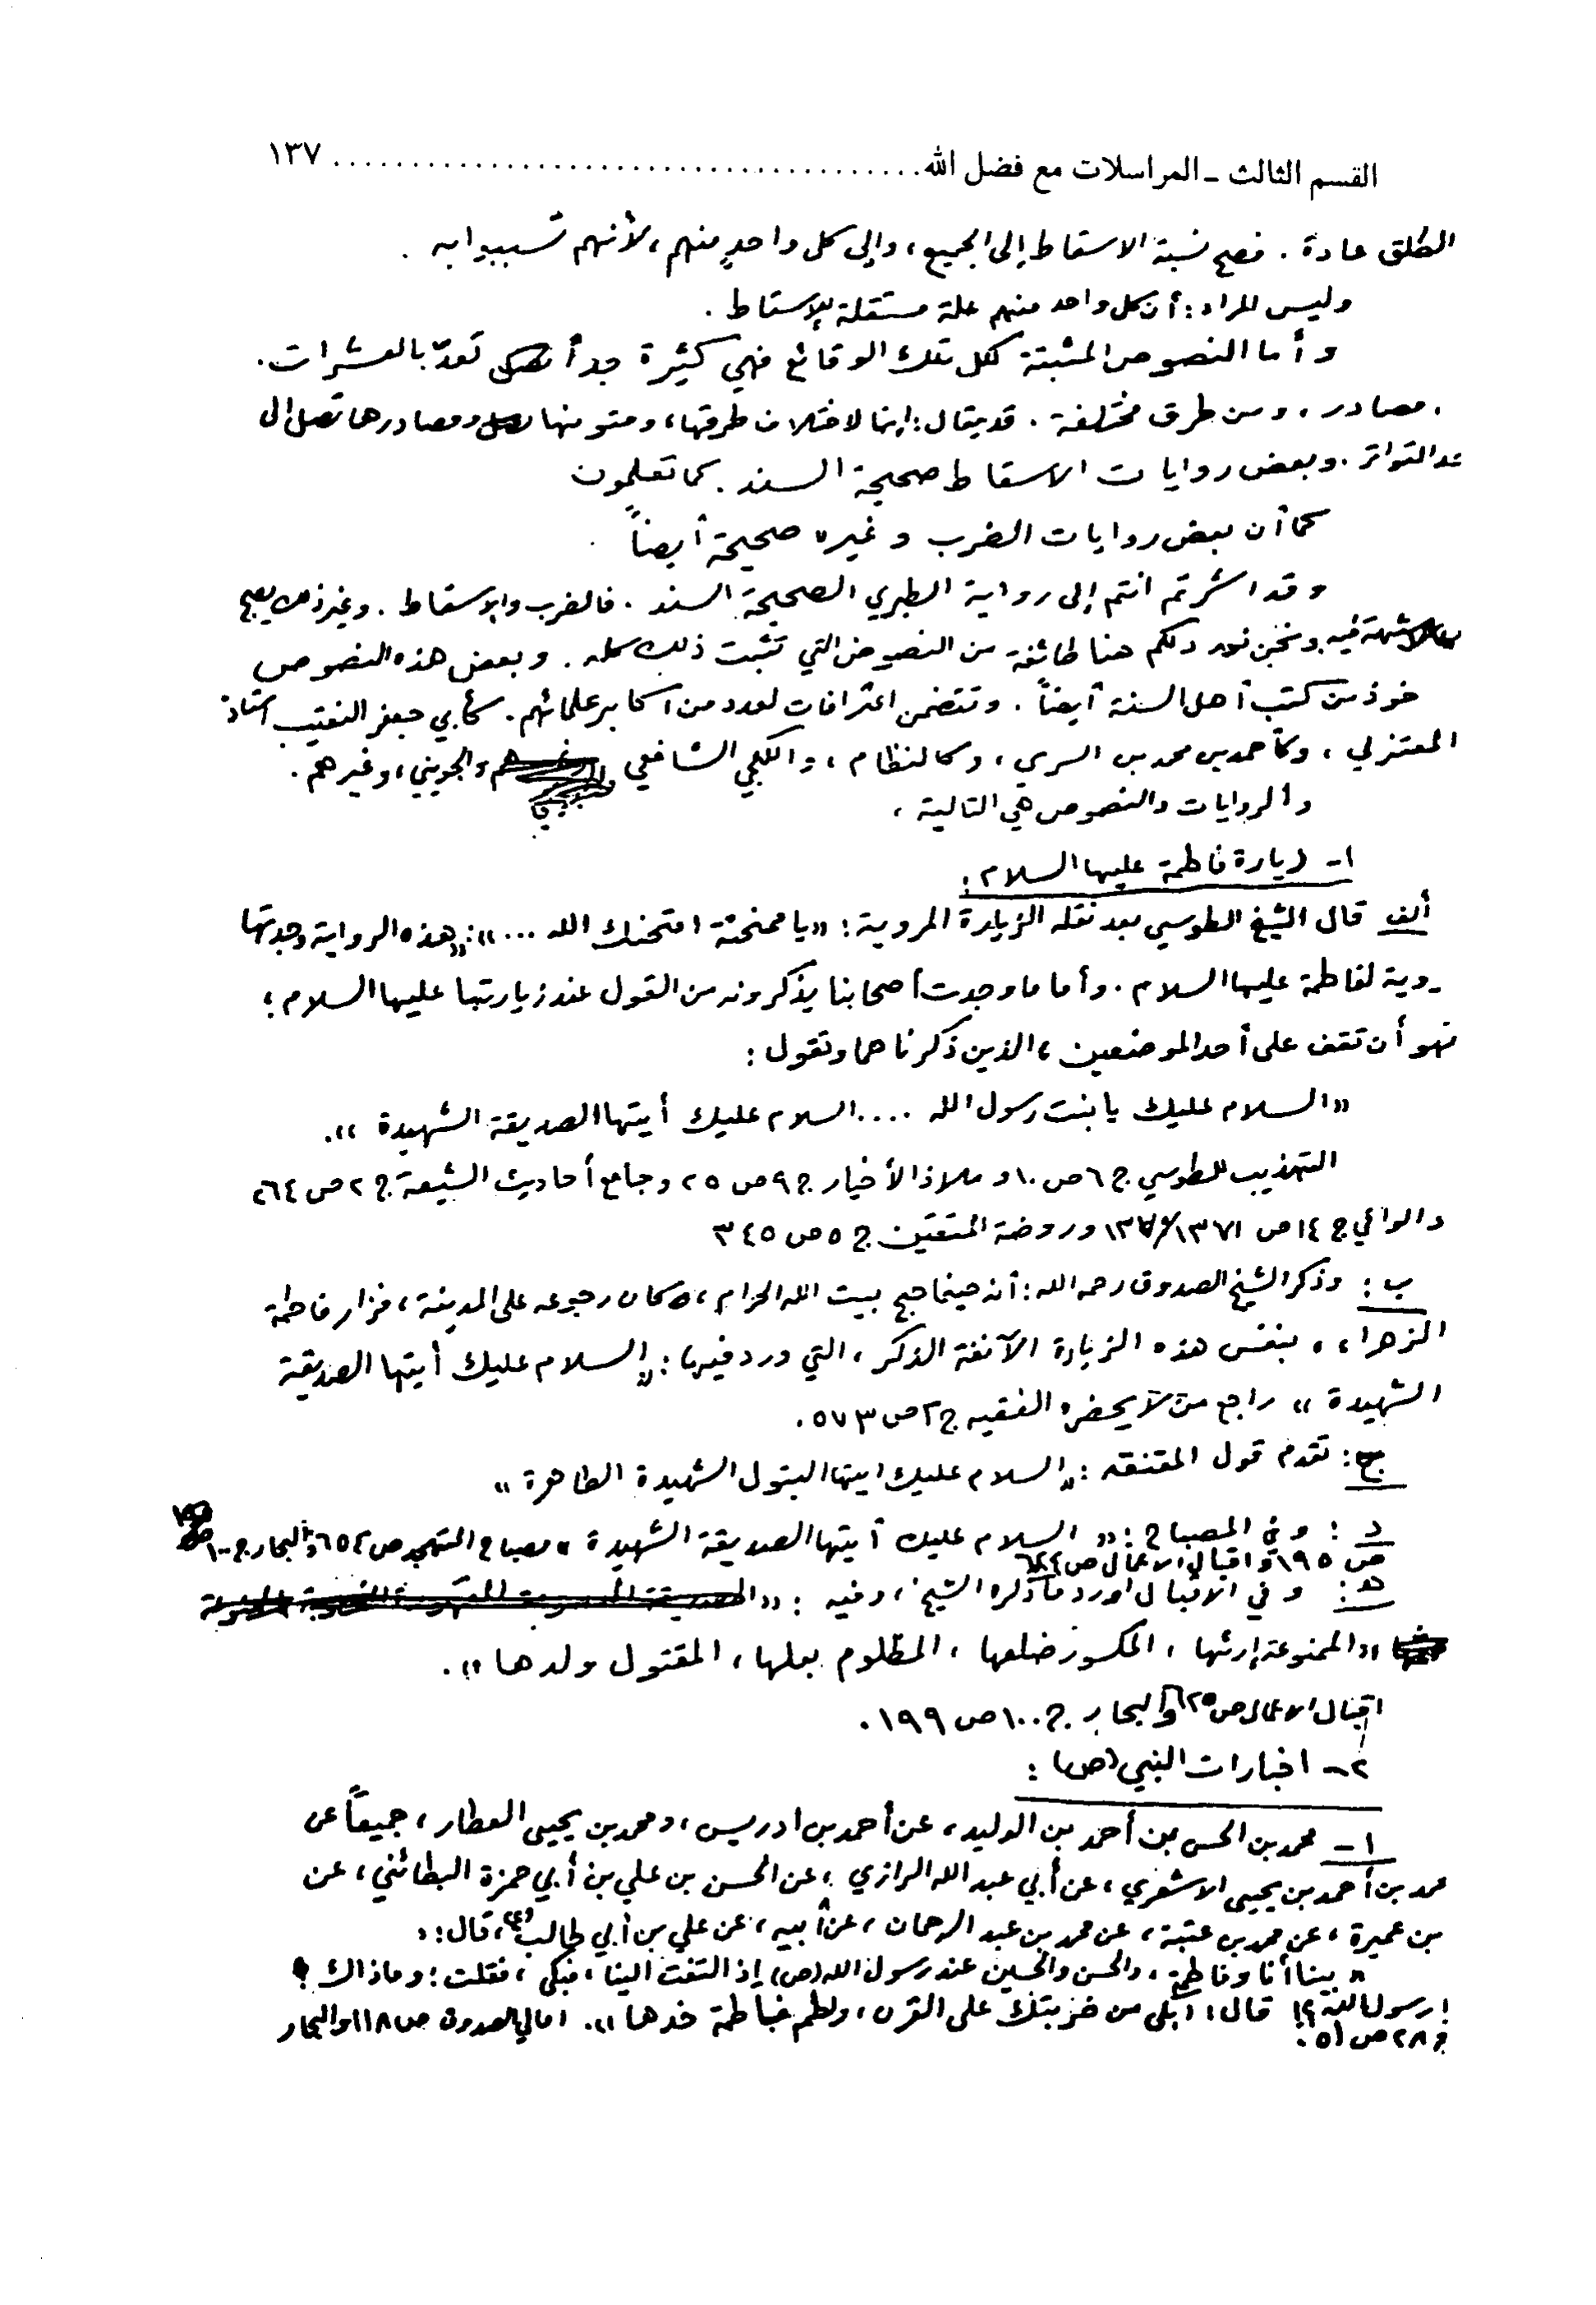 القسم الثالث ـ المراسلات مع فضل الله ........................................ ١٣٧
الطلق عادة . فصح نسبة الاسقاط إلى الجميع، وإلى كل واحدٍ منهم، لأنهم تسببوا به .
وليس المراد: أن كل واحد منهم علة مستقلة للإسقاط .
وأما النصوص المثبتة لكل تلك الوقائع فهي كثيرة جداً تعدّ بالعشرات .
مصادر ، ومن طرق مختلفة . قد يقال: إنها لاختلاف طرقها، ومتونها ومصادرها تصل إلى
حد التواتر . وبعض روايات الاسقاط صحيحة السند . كما تعلمون
كما أن بعض روايات الضرب وغيره صحيحة أيضاً .
وقد اشرتم انتم إلى رواية الطبري الصحيحة السند . فالضرب والإسقاط . وغير ذلك يصبح
لا شبهة فيه . ونحن نورد لكم هنا طائفة من النصوص التي تثبت ذلك كله . وبعض هذه النصوص
خوذ من كتب أهل السنة أيضاً . وتتضمن اعترافات لعدد من أكابر علمائهم . كأبي جعفر النقيب استاذ
المعتزلي ، وكأحمد بن محمد بن السري ، وكالنظام ، والكنجي الشافعي والجويني، وغيرهم .
والروايات والنصوص هي التالية ،
١- زيارة فاطمة عليها السلام :
ألف قال الشيخ الطوسي بعد نقله الزيارة المروية: «يا ممتحنة امتحنك الله ...»: «هذه الرواية وجدتها
ـروية لفاطمة عليها السلام . وأما ما وجدت أصحابنا يذكرونه من القول عند زيارتها عليها السلام؛
فهو أن تقف على أحد الموضعين ، الذين ذكرناهما وتقول :
«السلام عليك يا بنت رسول الله .... السلام عليك أيتها الصديقة الشهيدة ».
التهذيب للطوسي ج ٦ ص ١٠ و ملاذ الأخيار ج ٩ ص ٢٥ وجامع أحاديث الشيعة ج ٢ ص ٢٦٤
والوافي ج ١٤ ص ١٣٧١ وروضة المتقين ج ٥ ص ٣٤٥
ب : وذكر الشيخ الصدوق رحمه الله: أنه حينما حج بيت الله الحرام ، كان رجوعه على المدينة ، فزار فاطمة
الزهراء ، بنفس هذه الزيارة الآنفة الذكر ، التي ورد فيها: «السلام عليك أيتها الصديقة
الشهيدة » راجع من لا يحضره الفقيه ج ٢ ص ٥٧٣ .
ج : تقدم قول المقنعة : «السلام عليك ايتها البتول الشهيدة الطاهرة »
د : وفي المصباح : « السلام عليك أيتها الصديقة الشهيدة » مصباح المتهجد ص ٦٥٤ والبحار ج ١٠٠
ص ١٩٥ و اقبال الاعمال ص
هـ : وفي الاقبال اورد ما ذكره الشيخ ، وفيه :
«الممنوعة إرثها ، المكسور ضلعها ، المظلوم بعلها ، المقتول ولدها » .
اقبال الاعمال ص ٦٢٥ والبحار ج ١٠٠ ص ١٩٩ .
٢ – اخبارات النبي (ص) :
١ – محمد بن الحسن بن أحمد بن الوليد ، عن أحمد بن ادريس ، ومحمد بن يحيى العطار ، جميعاً عن
محمد بن أحمد بن يحيى الاشعري ، عن أبي عبد الله الرازي ، عن الحسن بن علي بن أبي حمزة البطائني ، عن
بن عميرة ، عن محمد بن عتبة ، عن محمد بن عبد الرحمان ، عن أبيه ، عن علي بن أبي طالب (ع)، قال :
« بينا أنا وفاطمة ، والحسن والحسين عند رسول الله (ص) إذ التفت الينا ، فبكى ، فقلت: وما ذاك
رسول الله ؟! قال: أبكي من ضربتك على القرن ، ولطم فاطمة خدها ». امالي الصدوق ص ١١٨ والبحار
ج ٢٨ ص ٥١ .